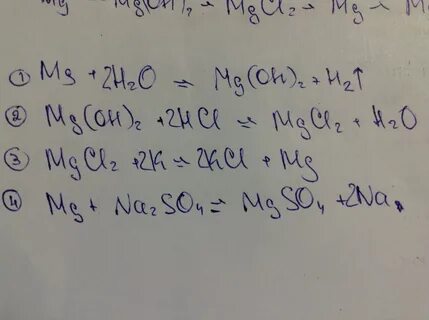 Mg → Mg(OH)₂ → MgCl₂ → Mg → M
① Mg + 2H₂O = Mg(OH)₂ + H₂↑
② Mg(OH)₂ + 2HCl = MgCl₂ + H₂O
③ MgCl₂ + 2K = 2KCl + Mg
④ Mg + Na₂SO₄ = MgSO₄ + 2Na